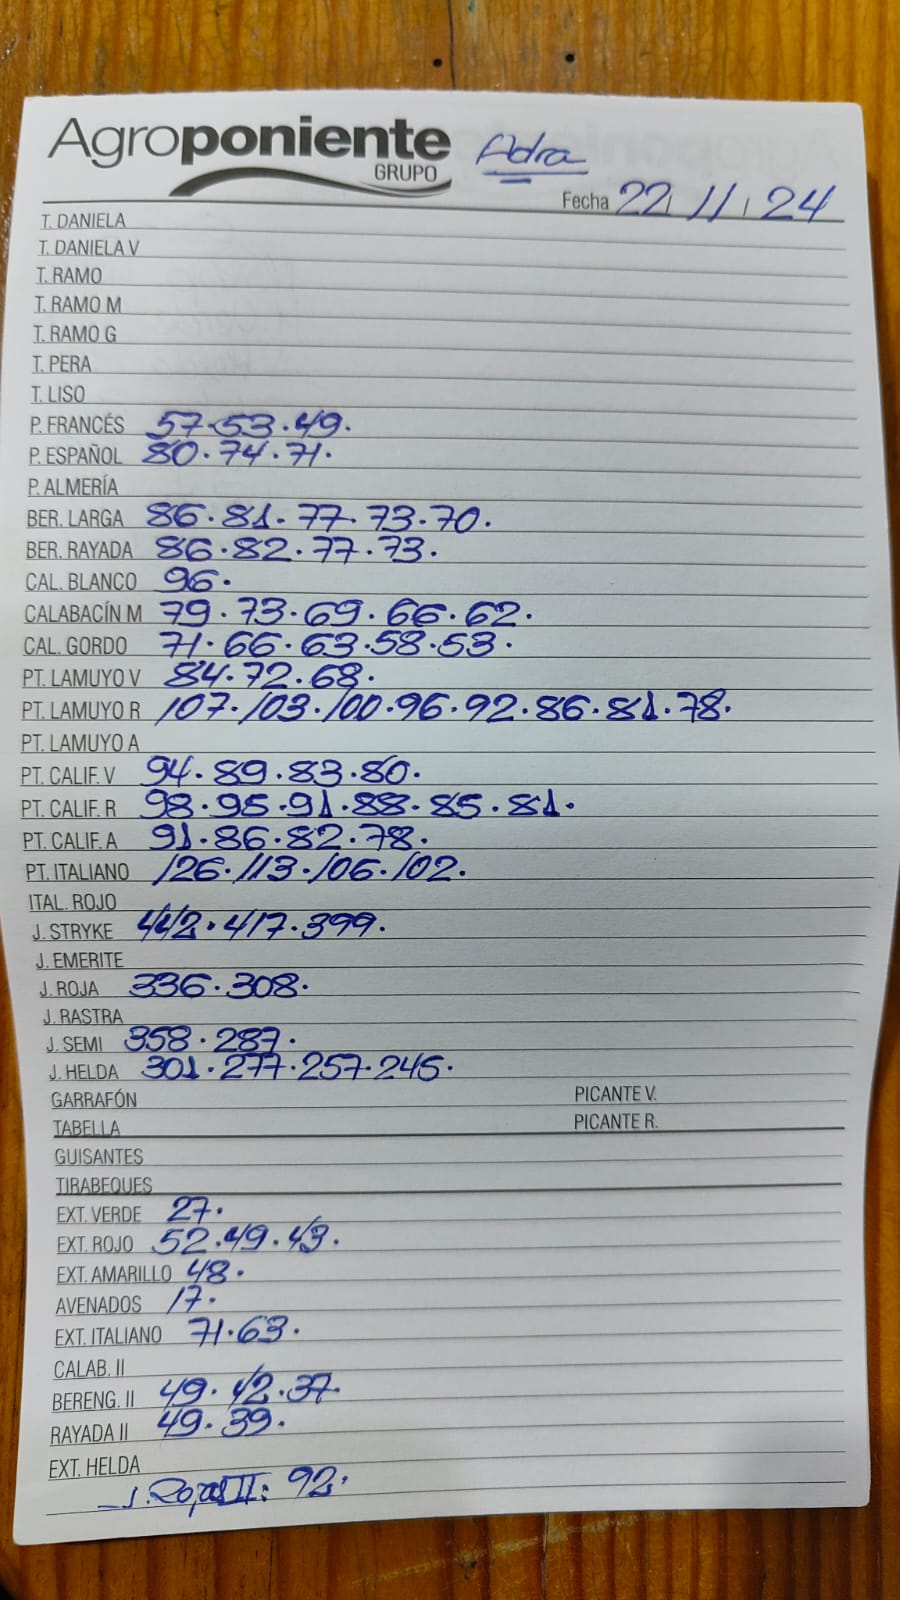 Agroponiente Adra
GRUPO
Fecha 22 / 11 / 24
T. DANIELA
T. DANIELA V
T. RAMO
T. RAMO M
T. RAMO G
T. PERA
T. LISO
P. FRANCÉS 57.53.49.
P. ESPAÑOL 80.74.71.
P. ALMERÍA
BER. LARGA 86.81.77.73.70.
BER. RAYADA 86.82.77.73.
CAL. BLANCO 96.
CALABACÍN M 79.73.69.66.62.
CAL. GORDO 71.66.63.58.53.
PT. LAMUYO V 84.72.68.
PT. LAMUYO R 107.103.100.96.92.86.81.78.
PT. LAMUYO A
PT. CALIF. V 94.89.83.80.
PT. CALIF. R 98.95.91.88.85.81.
PT. CALIF. A 91.86.82.78.
PT. ITALIANO 126.113.106.102.
ITAL. ROJO
J. STRYKE 442.417.399.
J. EMERITE
J. ROJA 336.308.
J. RASTRA
J. SEMI 358.287.
J. HELDA 301.277.257.245.
GARRAFÓN PICANTE V.
TABELLA PICANTE R.
GUISANTES
TIRABEQUES
EXT. VERDE 27.
EXT. ROJO 52.49.43.
EXT. AMARILLO 48.
AVENADOS 17.
EXT. ITALIANO 71.63.
CALAB. II
BERENG. II 49.42.37.
RAYADA II 49.39.
EXT. HELDA
J. Rojas II: 92.